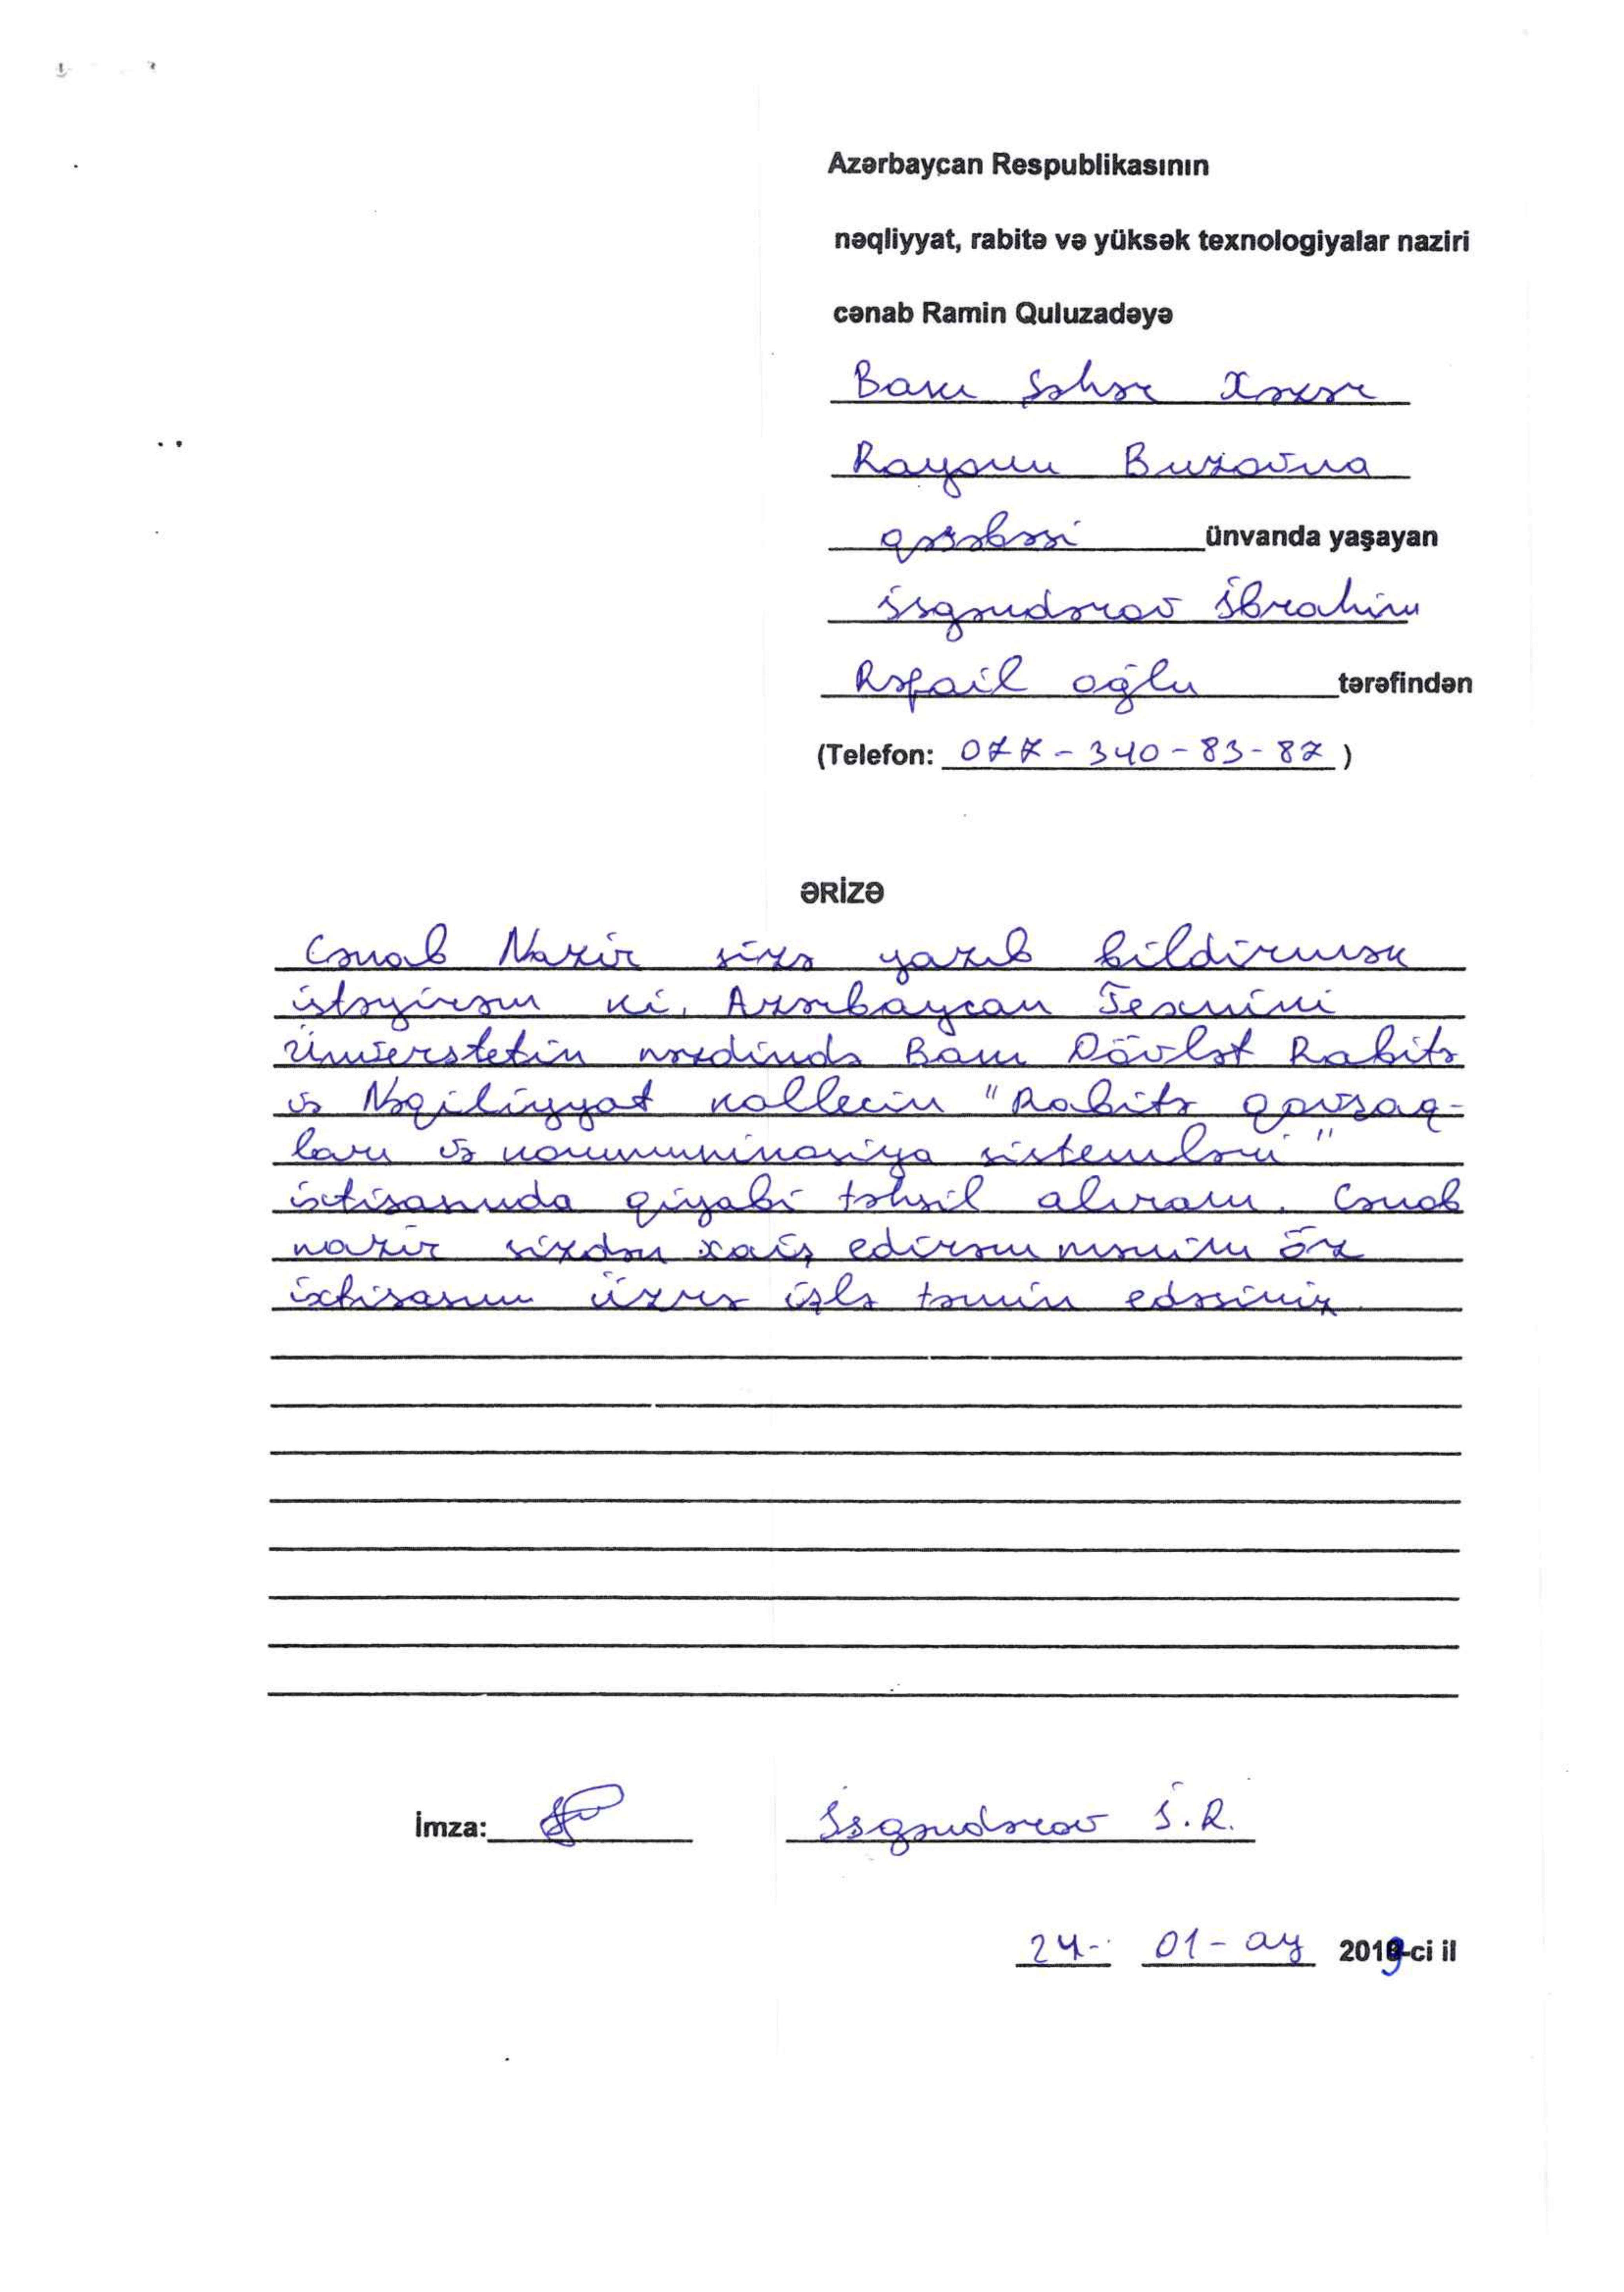 Azərbaycan Respublikasının
nəqliyyat, rabitə və yüksək texnologiyalar naziri
cənab Ramin Quluzadəyə
Bakı Şəhər Xəzər
Rayonu Buzovna
qəsəbəsi ünvanda yaşayan
İsgəndərov İbrahim
Rəfail oğlu tərəfindən
(Telefon: 077-340-83-87)
ƏRİZƏ
Cənab Nazir sizə yazıb bildirmək
istəyirəm ki, Azərbaycan Texniki
Ünverstetin nəzdində Bakı Dövlət Rabitə
və Nəqiliyyat kollecin "Rabitə qovşaq-
ları və kommunikasiya sistemləri"
ixtisasında qiyabi təhsil alıram. Cənab
nazir sizdən xaiş edirəm mənim öz
ixtisasım üzrə işlə təmin edəsiniz
İmza: İsgəndərov İ.R.
24- 01-ay 2019-ci il